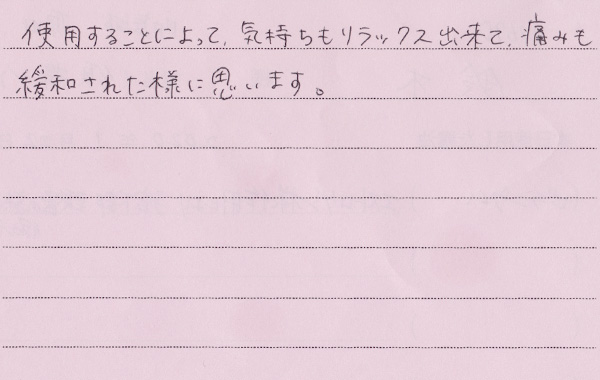 使用することによって、気持ちもリラックス出来て、痛みも
緩和された様に思います。